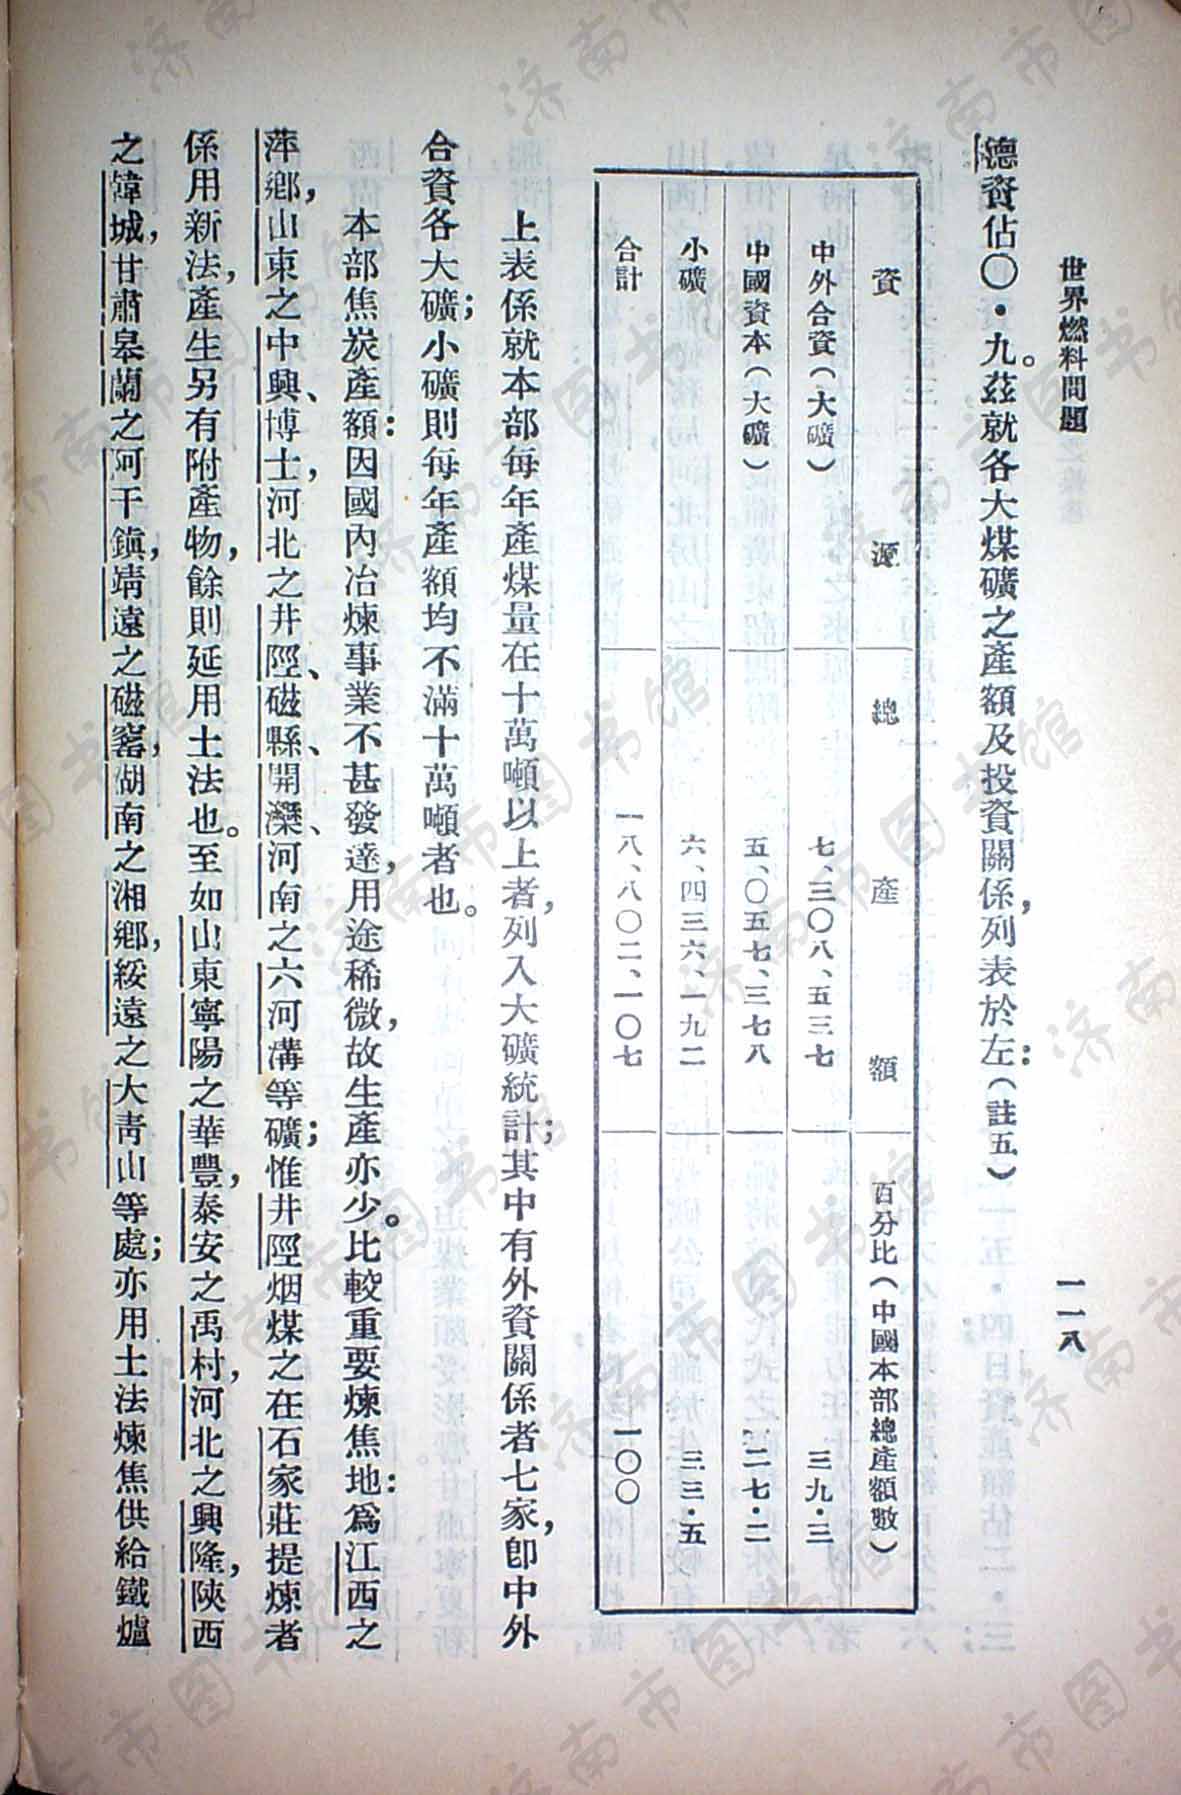 世界燃料問題
一一八
德資佔〇・九。茲就各大煤礦之產額及投資關係，列表於左：（註五）
資源
總產額
百分比（中國本部總產額數）
中外合資（大礦）
七、三〇八、五三七
三九・三
中國資本（大礦）
五、〇五七、三七八
二七・二
小礦
六、四三六、一九二
三三・五
合計
一八、八〇二、一〇七
一〇〇
上表係就本部每年產煤量在十萬噸以上者，列入大礦統計；其中有外資關係者七家，卽中外
合資各大礦；小礦則每年產額均不滿十萬噸者也。
本部焦炭產額：因國內冶煉事業不甚發達，用途稀微，故生產亦少。比較重要煉焦地：爲江西之
萍鄉，山東之中興、博士，河北之井陘、磁縣、開灤、河南之六河溝等礦；惟井陘烟煤之在石家莊提煉者
係用新法，產生另有附產物，餘則延用土法也。至如山東寧陽之華豐，泰安之禹村，河北之興隆，陝西
之韓城，甘肅皋蘭之阿干鎮，靖遠之磁窰，湖南之湘鄉，綏遠之大青山等處；亦用土法煉焦供給鐵爐